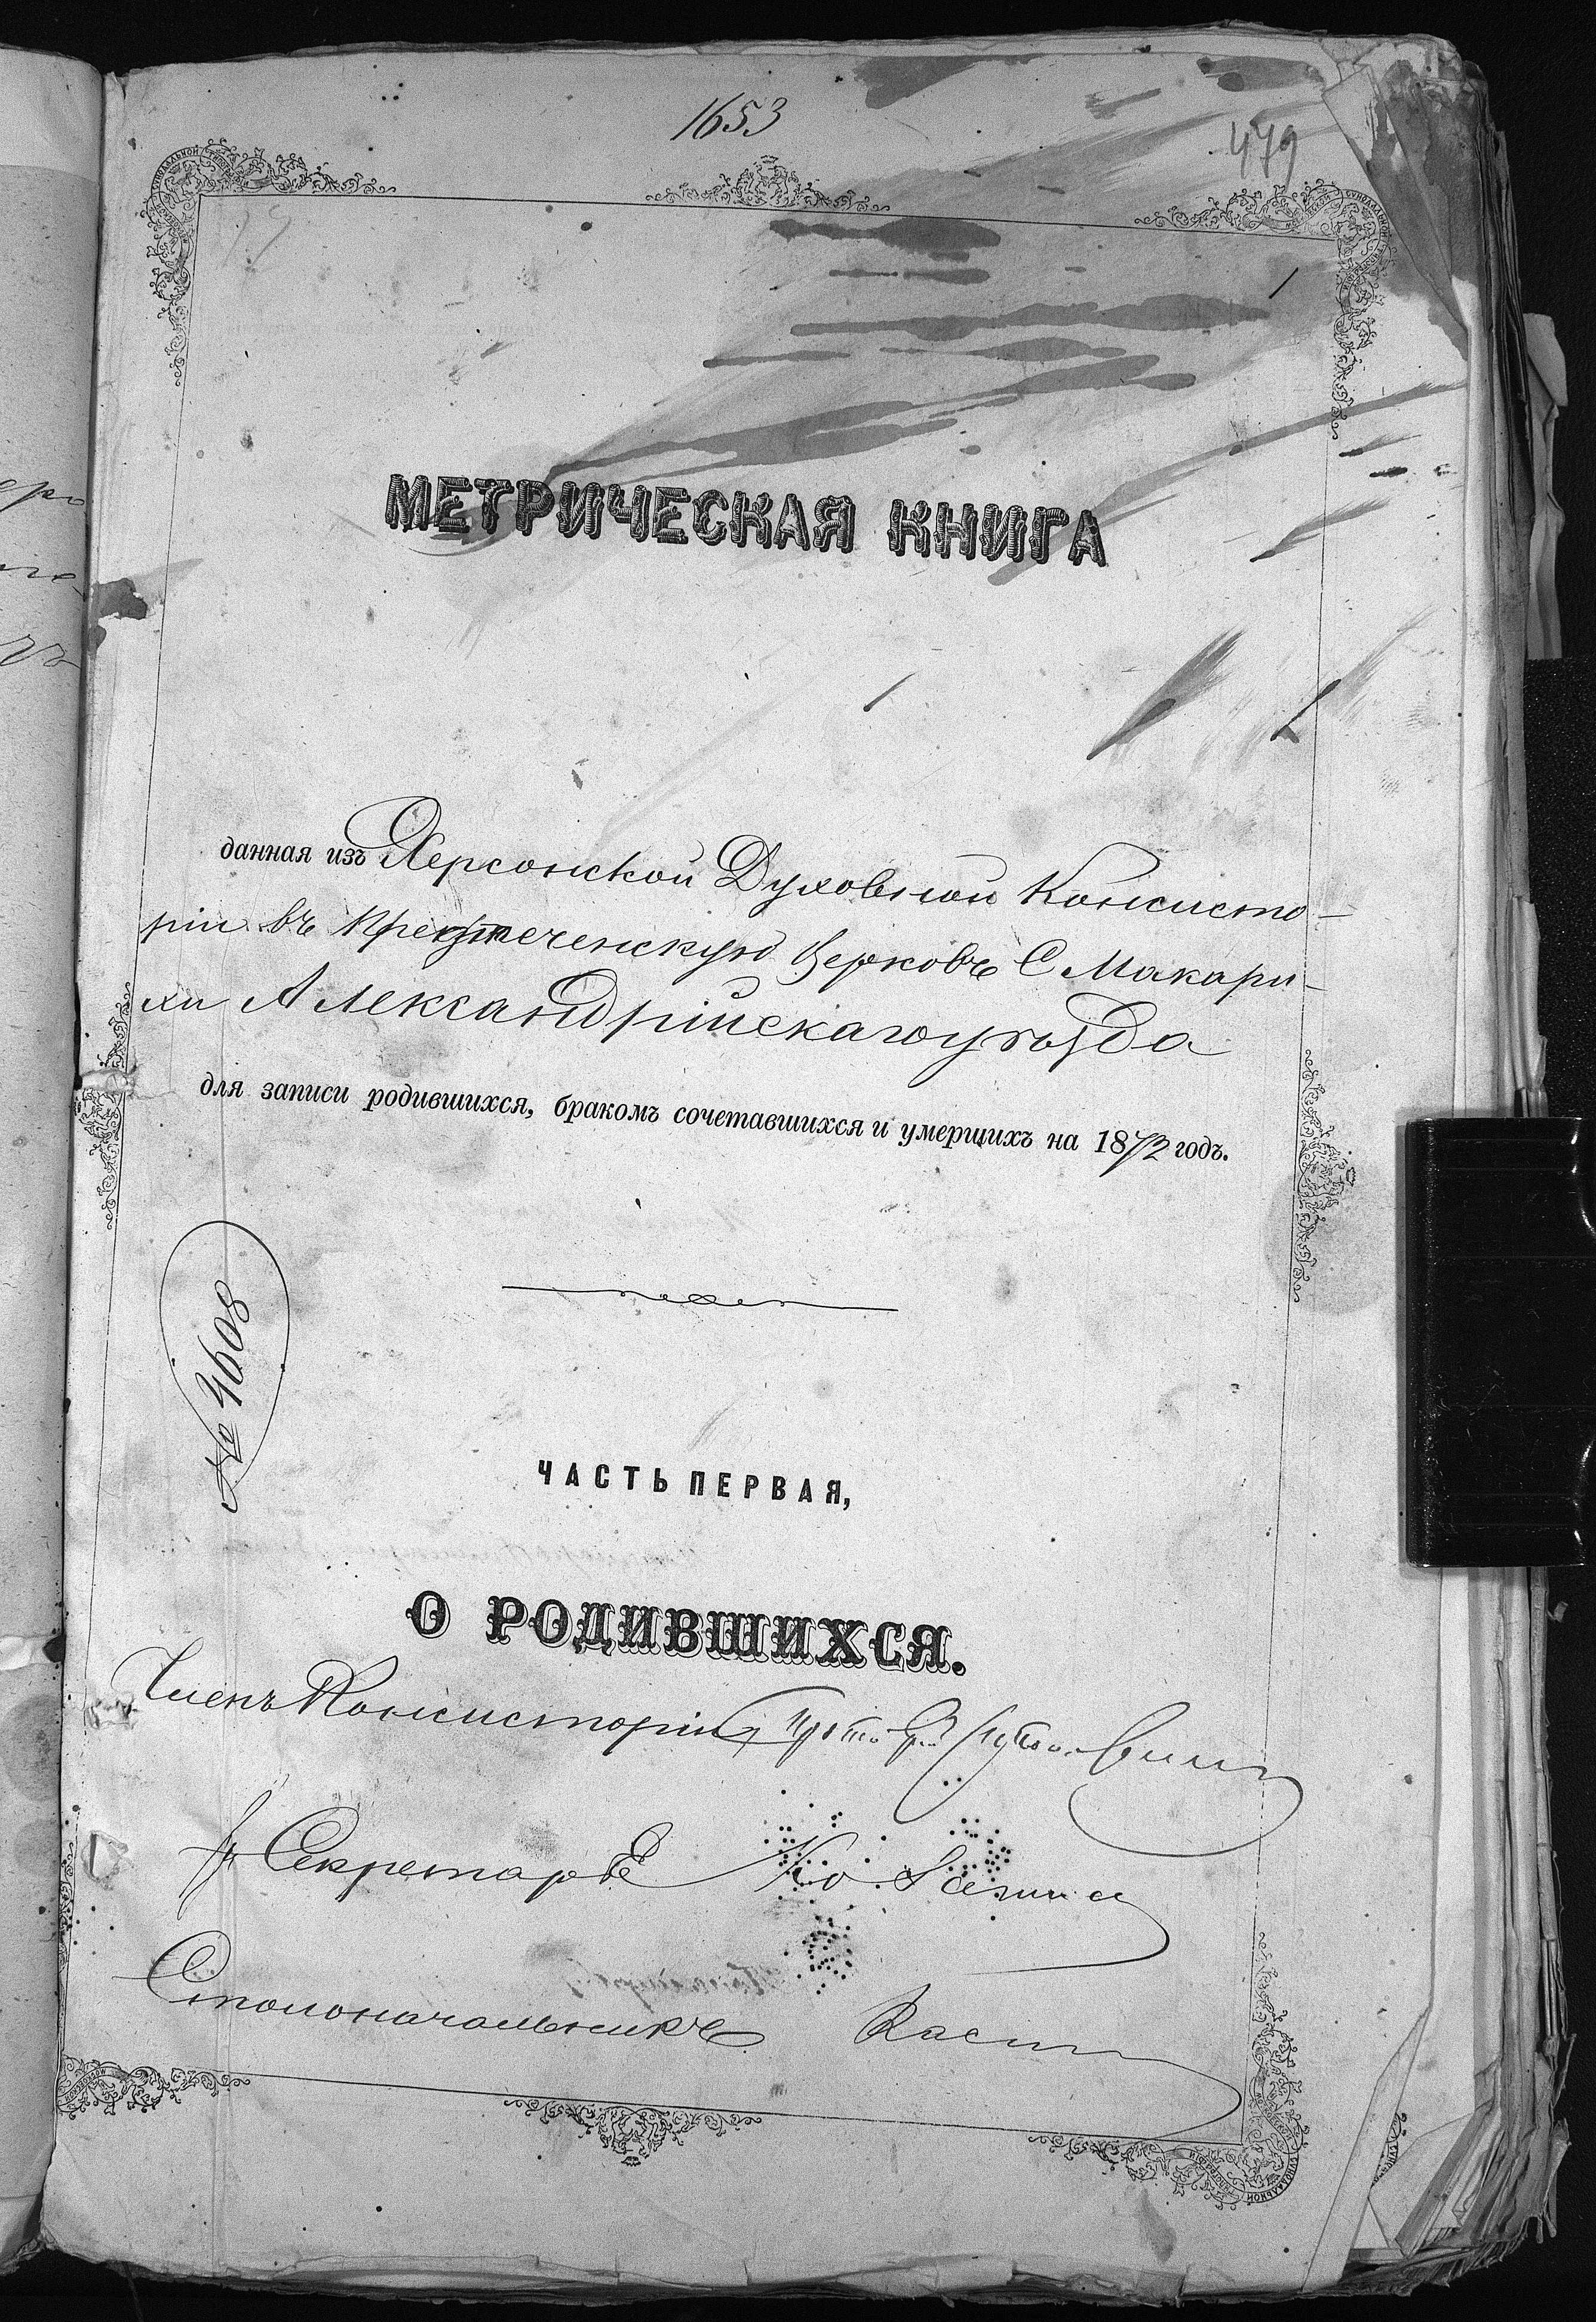 1653
479
МЕТРИЧЕСКАЯ КНИГА
данная изъ Херсонской Духовной Консисто-
ріи въ Предтеченскую Церковь С Макари-
хи Александрійскаго уѣзда
для записи родившихся, бракомъ сочетавшихся и умершихъ на 1872 годъ.
№ 4608
ЧАСТЬ ПЕРВАЯ,
О РОДИВШИХСЯ.
Членъ Консисторіи
Секретарь
Столоначальникъ